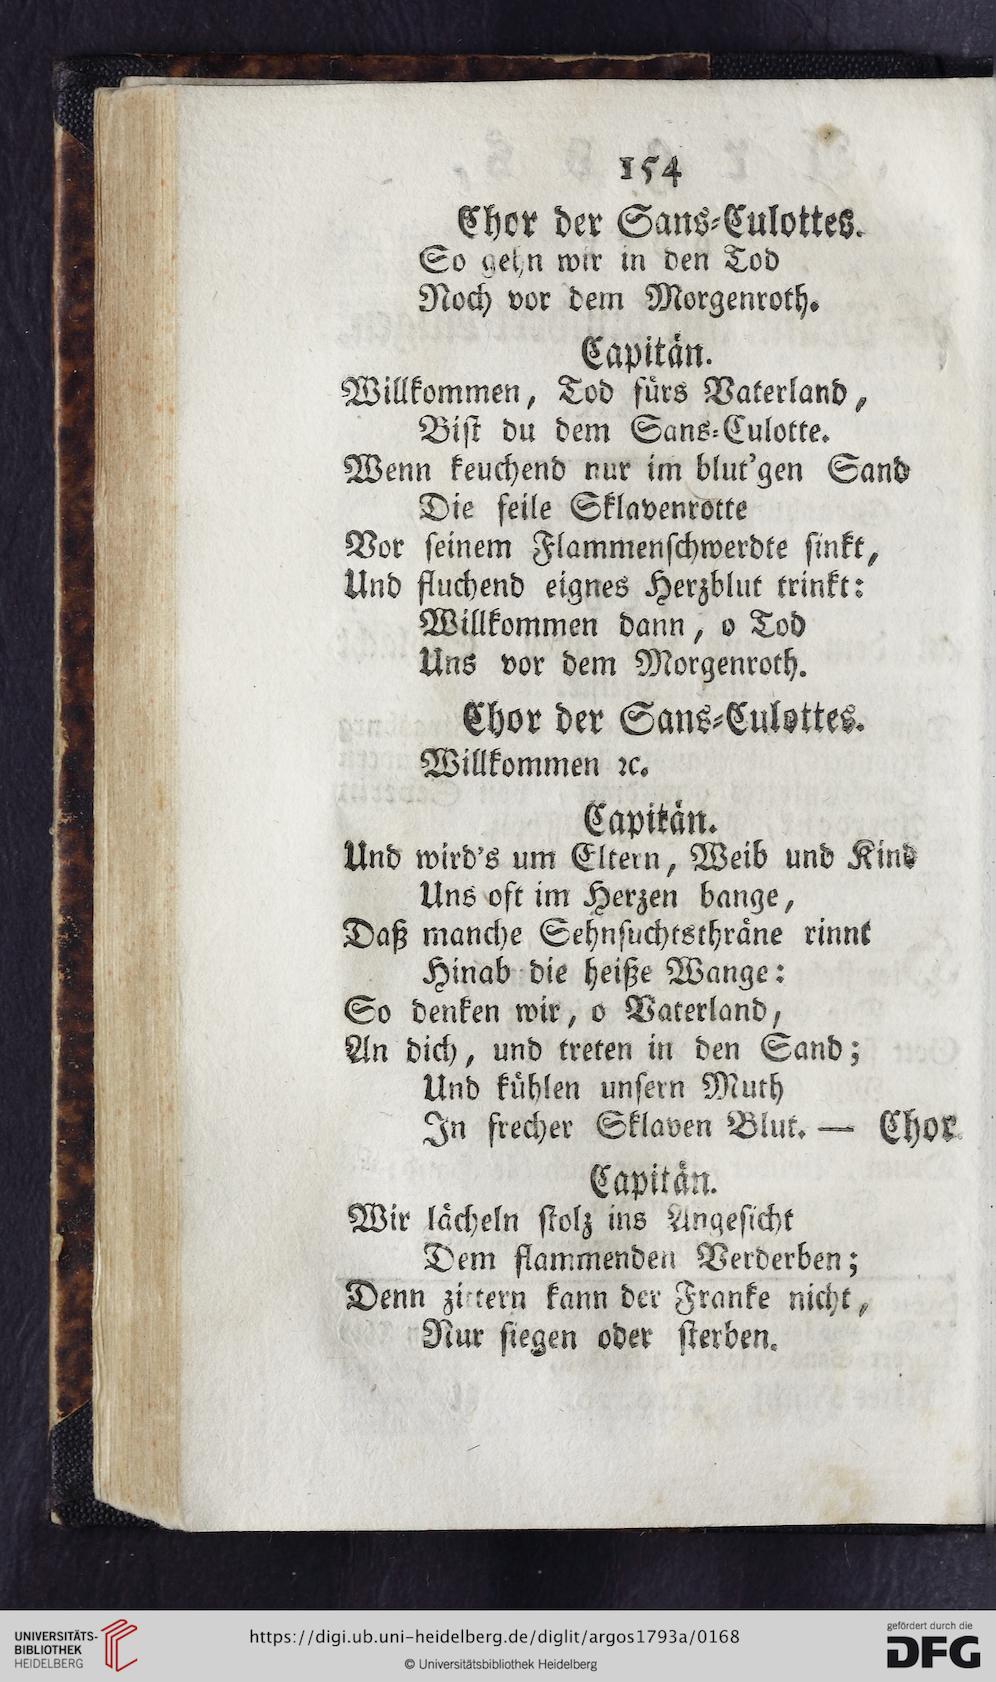 154
Chor der Sans-Culottes.
So gehn wir in den Tod
Noch vor dem Morgenroth.
Capitän.
Willkommen, Tod fürs Vaterland,
Bist du dem Sans-Culotte.
Wenn keuchend nur im blut'gen Sand
Die feile Sklavenrotte
Vor seinem Flammenschwerdte sinkt,
Und fluchend eignes Herzblut trinkt:
Willkommen dann, o Tod
Uns vor dem Morgenroth.
Chor der Sans-Culottes.
Willkommen ꝛc.
Capitän.
Und wird's um Eltern, Weib und Kind
Uns oft im Herzen bange,
Daß manche Sehnsuchtsthräne rinnt
Hinab die heiße Wange:
So denken wir, o Vaterland,
An dich, und treten in den Sand;
Und kühlen unsern Muth
In frecher Sklaven Blut. — Chor.
Capitän.
Wir lächeln stolz ins Angesicht
Dem flammenden Verderben;
Denn zittern kann der Franke nicht,
Nur siegen oder sterben.
UNIVERSITÄTS-
BIBLIOTHEK
HEIDELBERG
https://digi.ub.uni-heidelberg.de/diglit/argos1793a/0168
© Universitätsbibliothek Heidelberg
gefördert durch die
DFG